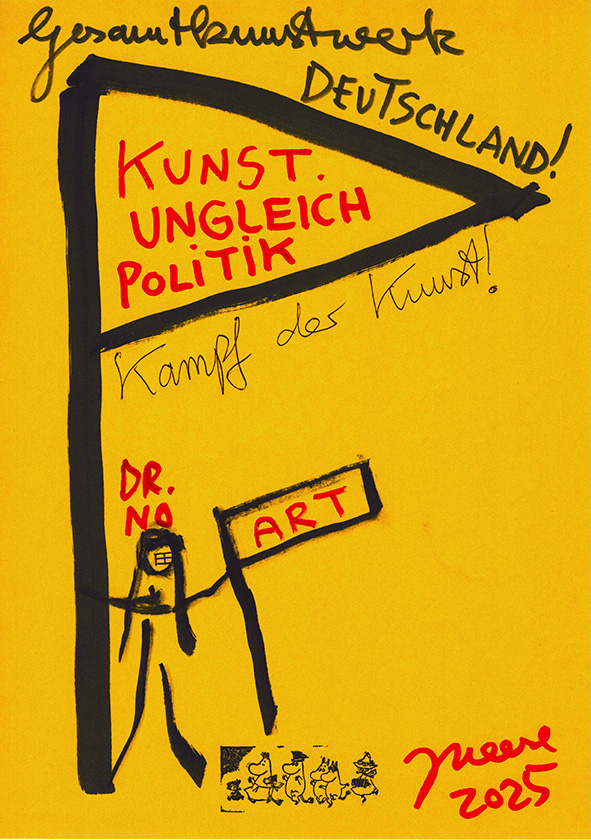 Gesamtkunstwerk
DEUTSCHLAND!
KUNST.
UNGLEICH
POLiTiK
Kampf der Kunst!
DR.
NO
ART
Meese
2025